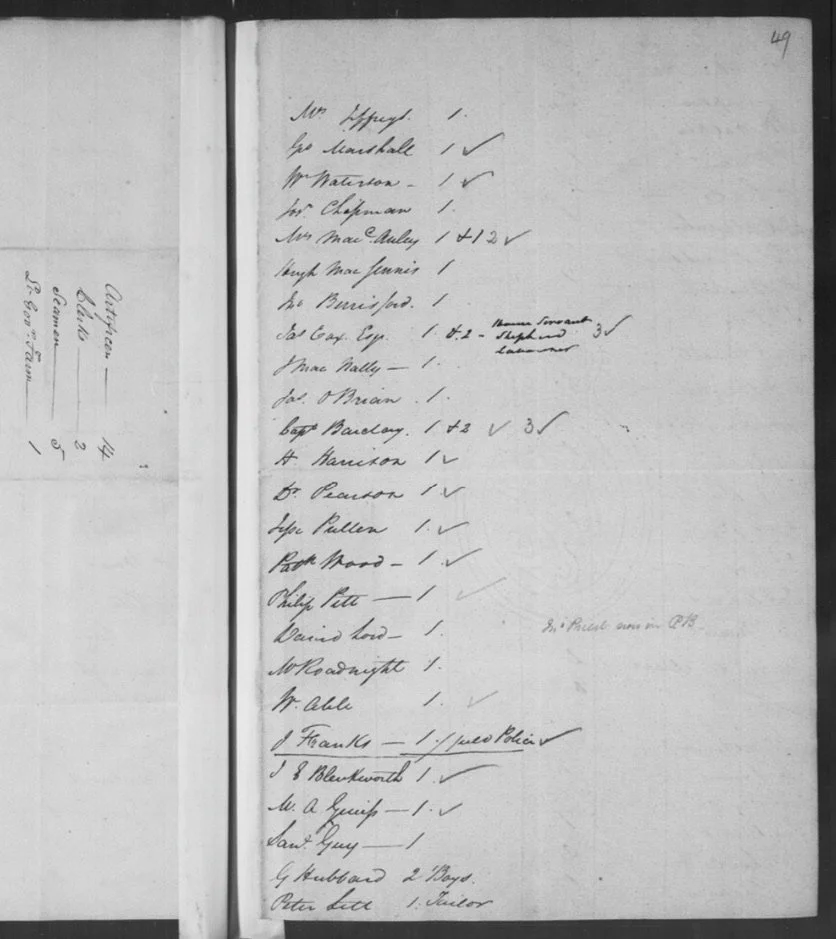 49
Mrs Jeffreys. 1.
Geo Marshall 1 ✓
Wm Waterson - 1 ✓
Jos. Chapman 1.
Mrs MacAuley 1 + 1 2 ✓
Hugh Mac Jennis 1
Jno Berrisford. 1
Jas Cox Esq. 1. & 2 - House Servant
Shepherd 3 ✓
Labourer
J Mac Nally — 1.
Jas. O'Brian . 1.
Capt Barclay. 1 + 2 ✓ 3 ✓
H. Harrison 1 ✓
Dr. Pearson 1 ✓
Jesse Pullen 1. ✓
Patk Wood - 1. ✓
Philip Pitt — 1 ✓
David Lord - 1.
Jno Priest now in PB
Mr Roadnight 1.
W. Able 1. ✓
J Franks — 1. / Police ✓
J E Blenkworth 1. ✓
M. A — 1. ✓
Saml Guy — 1
G Hubbard 2 Boys.
Peter Lett 1. Tailor
Artificers — 14
Clerks — 2
Seamen — 5
Lt. Govrs. Farm — 1